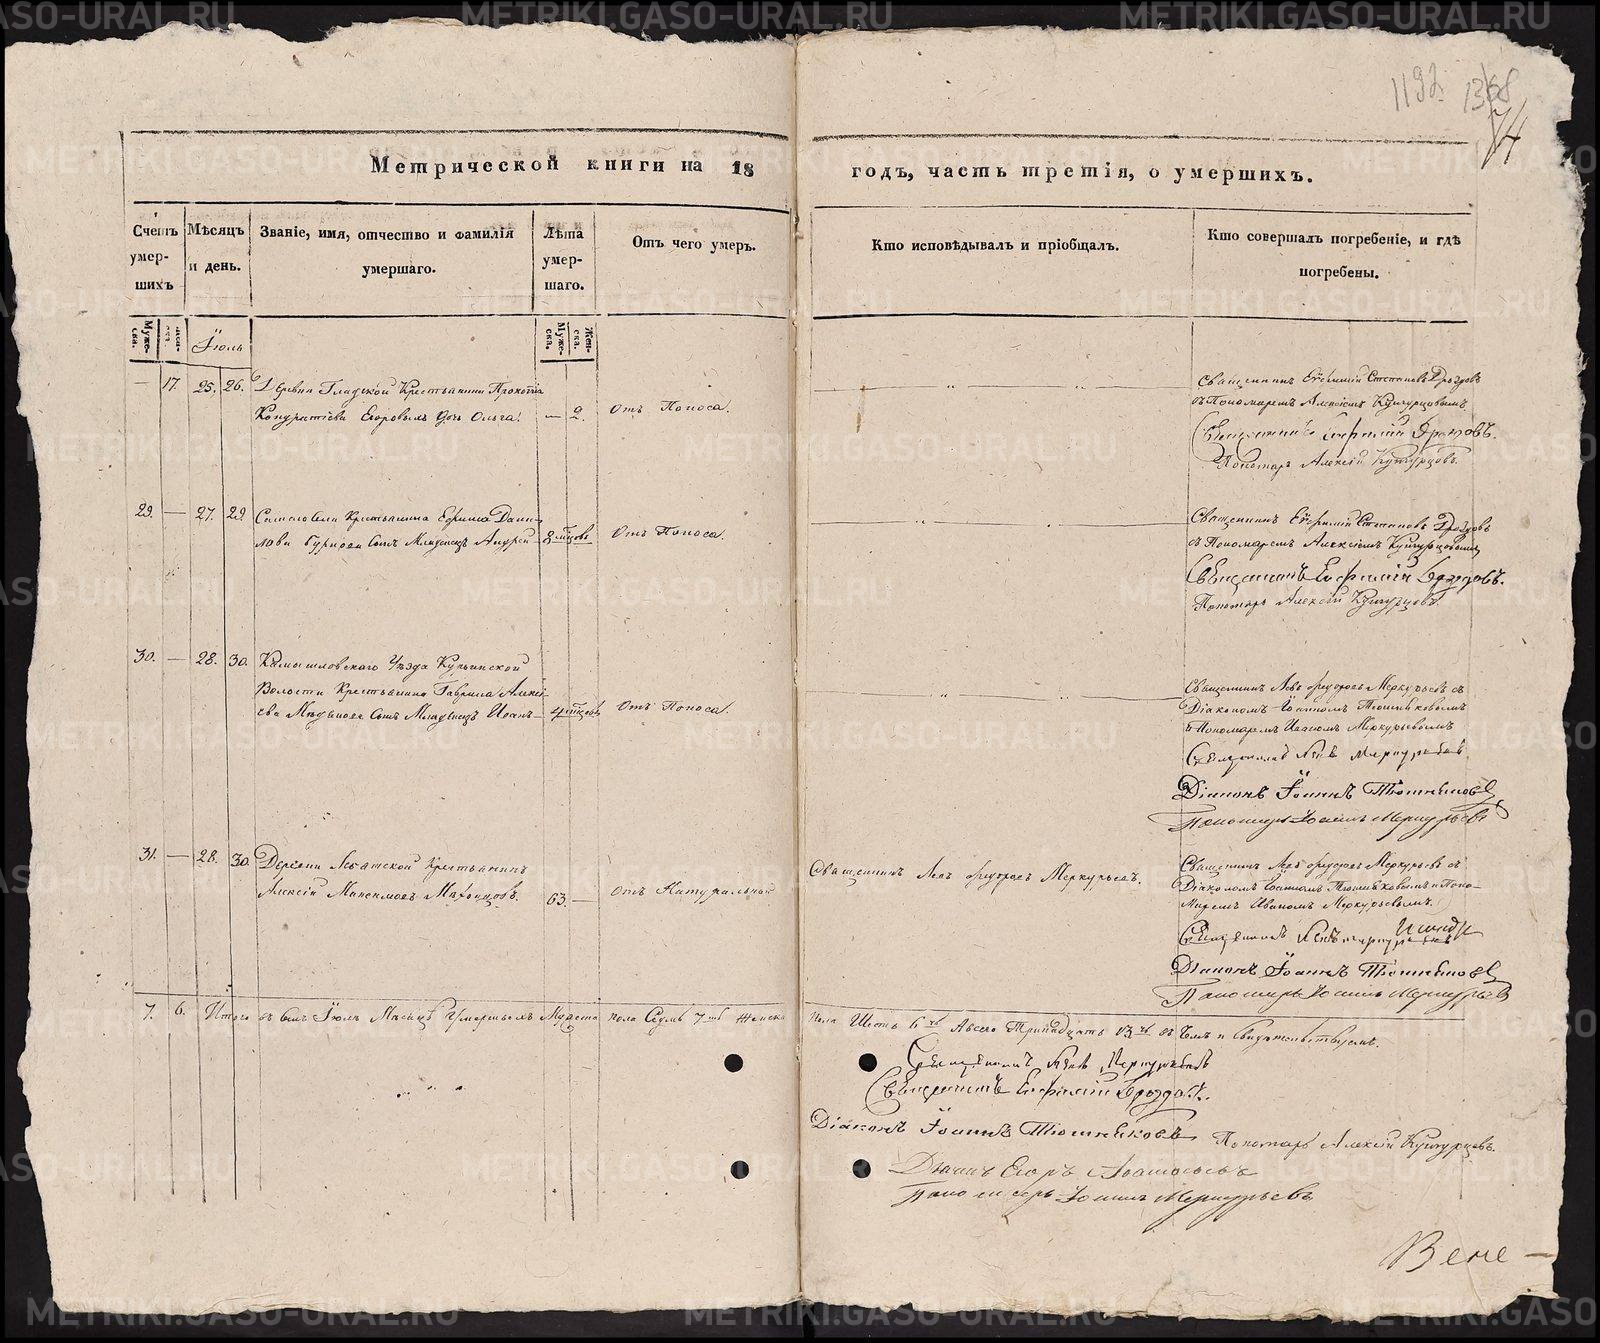 1192 1368
74
Метрической книги на 18 годъ, часть третія, о умершихъ.
Счетъ умер-шихъ
Мѣсяцъ и день.
Званіе, имя, отчество и фамилія умершаго.
Лѣта умер-шаго.
Отъ чего умеръ.
Кто исповѣдывалъ и пріобщалъ.
Кто совершалъ погребеніе, и гдѣ погребены.
Муже-ска.
Муже-ска.
Жен-ска.
Іюль
— 17. 25. 26. Деревни Гладской Крестьянина Прокопія
Кондратіева Егоровыхъ дочь Ольга.
— 2. Отъ Поноса.
Священникъ Евфимій Стефановъ Дроздовъ
съ Пономаремъ Алексіемъ Кунгурцовымъ
Священникъ Евфимій Дроздовъ.
Пономарь Алексій Кунгурцовъ.
29. — 27. 29. Сегоже Села Крестьянина Ефрема Дани-
лова сынъ Младенецъ Андрей
8 мѣсцовъ Отъ Поноса.
Священникъ Евфимій Стефановъ Дроздовъ
съ Пономаремъ Алексіемъ Кунгурцовымъ
Священникъ Евфимій Дроздовъ.
Пономарь Алексій Кунгурцовъ.
30. — 28. 30. Камышловскаго Уѣзда Курьинской
Волости Крестьянина Гаврила Алексі-
ева сынъ Младенецъ Иванъ
4 мѣсцовъ Отъ Поноса.
Священникъ Левъ Меркурьевъ съ
Діакономъ Іоанномъ Тюшняковымъ
и Пономаремъ Иваномъ Меркурьевымъ
Священникъ Левъ Меркурьевъ
Діаконъ Іоаннъ Тюшняковъ
Пономарь Іоаннъ Меркурьевъ
31. — 28. 30. Деревни Крестьянинъ
Алексій Максимовъ
63. — Отъ Натуральной
Священникъ Левъ Меркурьевъ.
Священникъ Левъ Меркурьевъ съ
Діакономъ Іоанномъ Тюшняковымъ и Поно-
маремъ Иваномъ Меркурьевымъ.
Священникъ Левъ Меркурьевъ
Діаконъ Іоаннъ Тюшняковъ
Пономарь Іоаннъ Меркурьевъ
7. 6. Итого въ Іюлѣ Мѣсяцѣ Умершихъ Мужеска пола Семь 7 Женска пола Шесть 6 Авсего Тринадцать 13 въ чемъ и Свидѣтельствуемъ.
Священникъ Левъ Меркурьевъ
Священникъ Евфимій Дроздовъ.
Діаконъ Іоаннъ Тюшняковъ
Пономарь Алексій Кунгурцовъ.
Дьячекъ Егоръ
Пономарь Іоаннъ Меркурьевъ
Вене-
METRIKI.GASO-URAL.RU